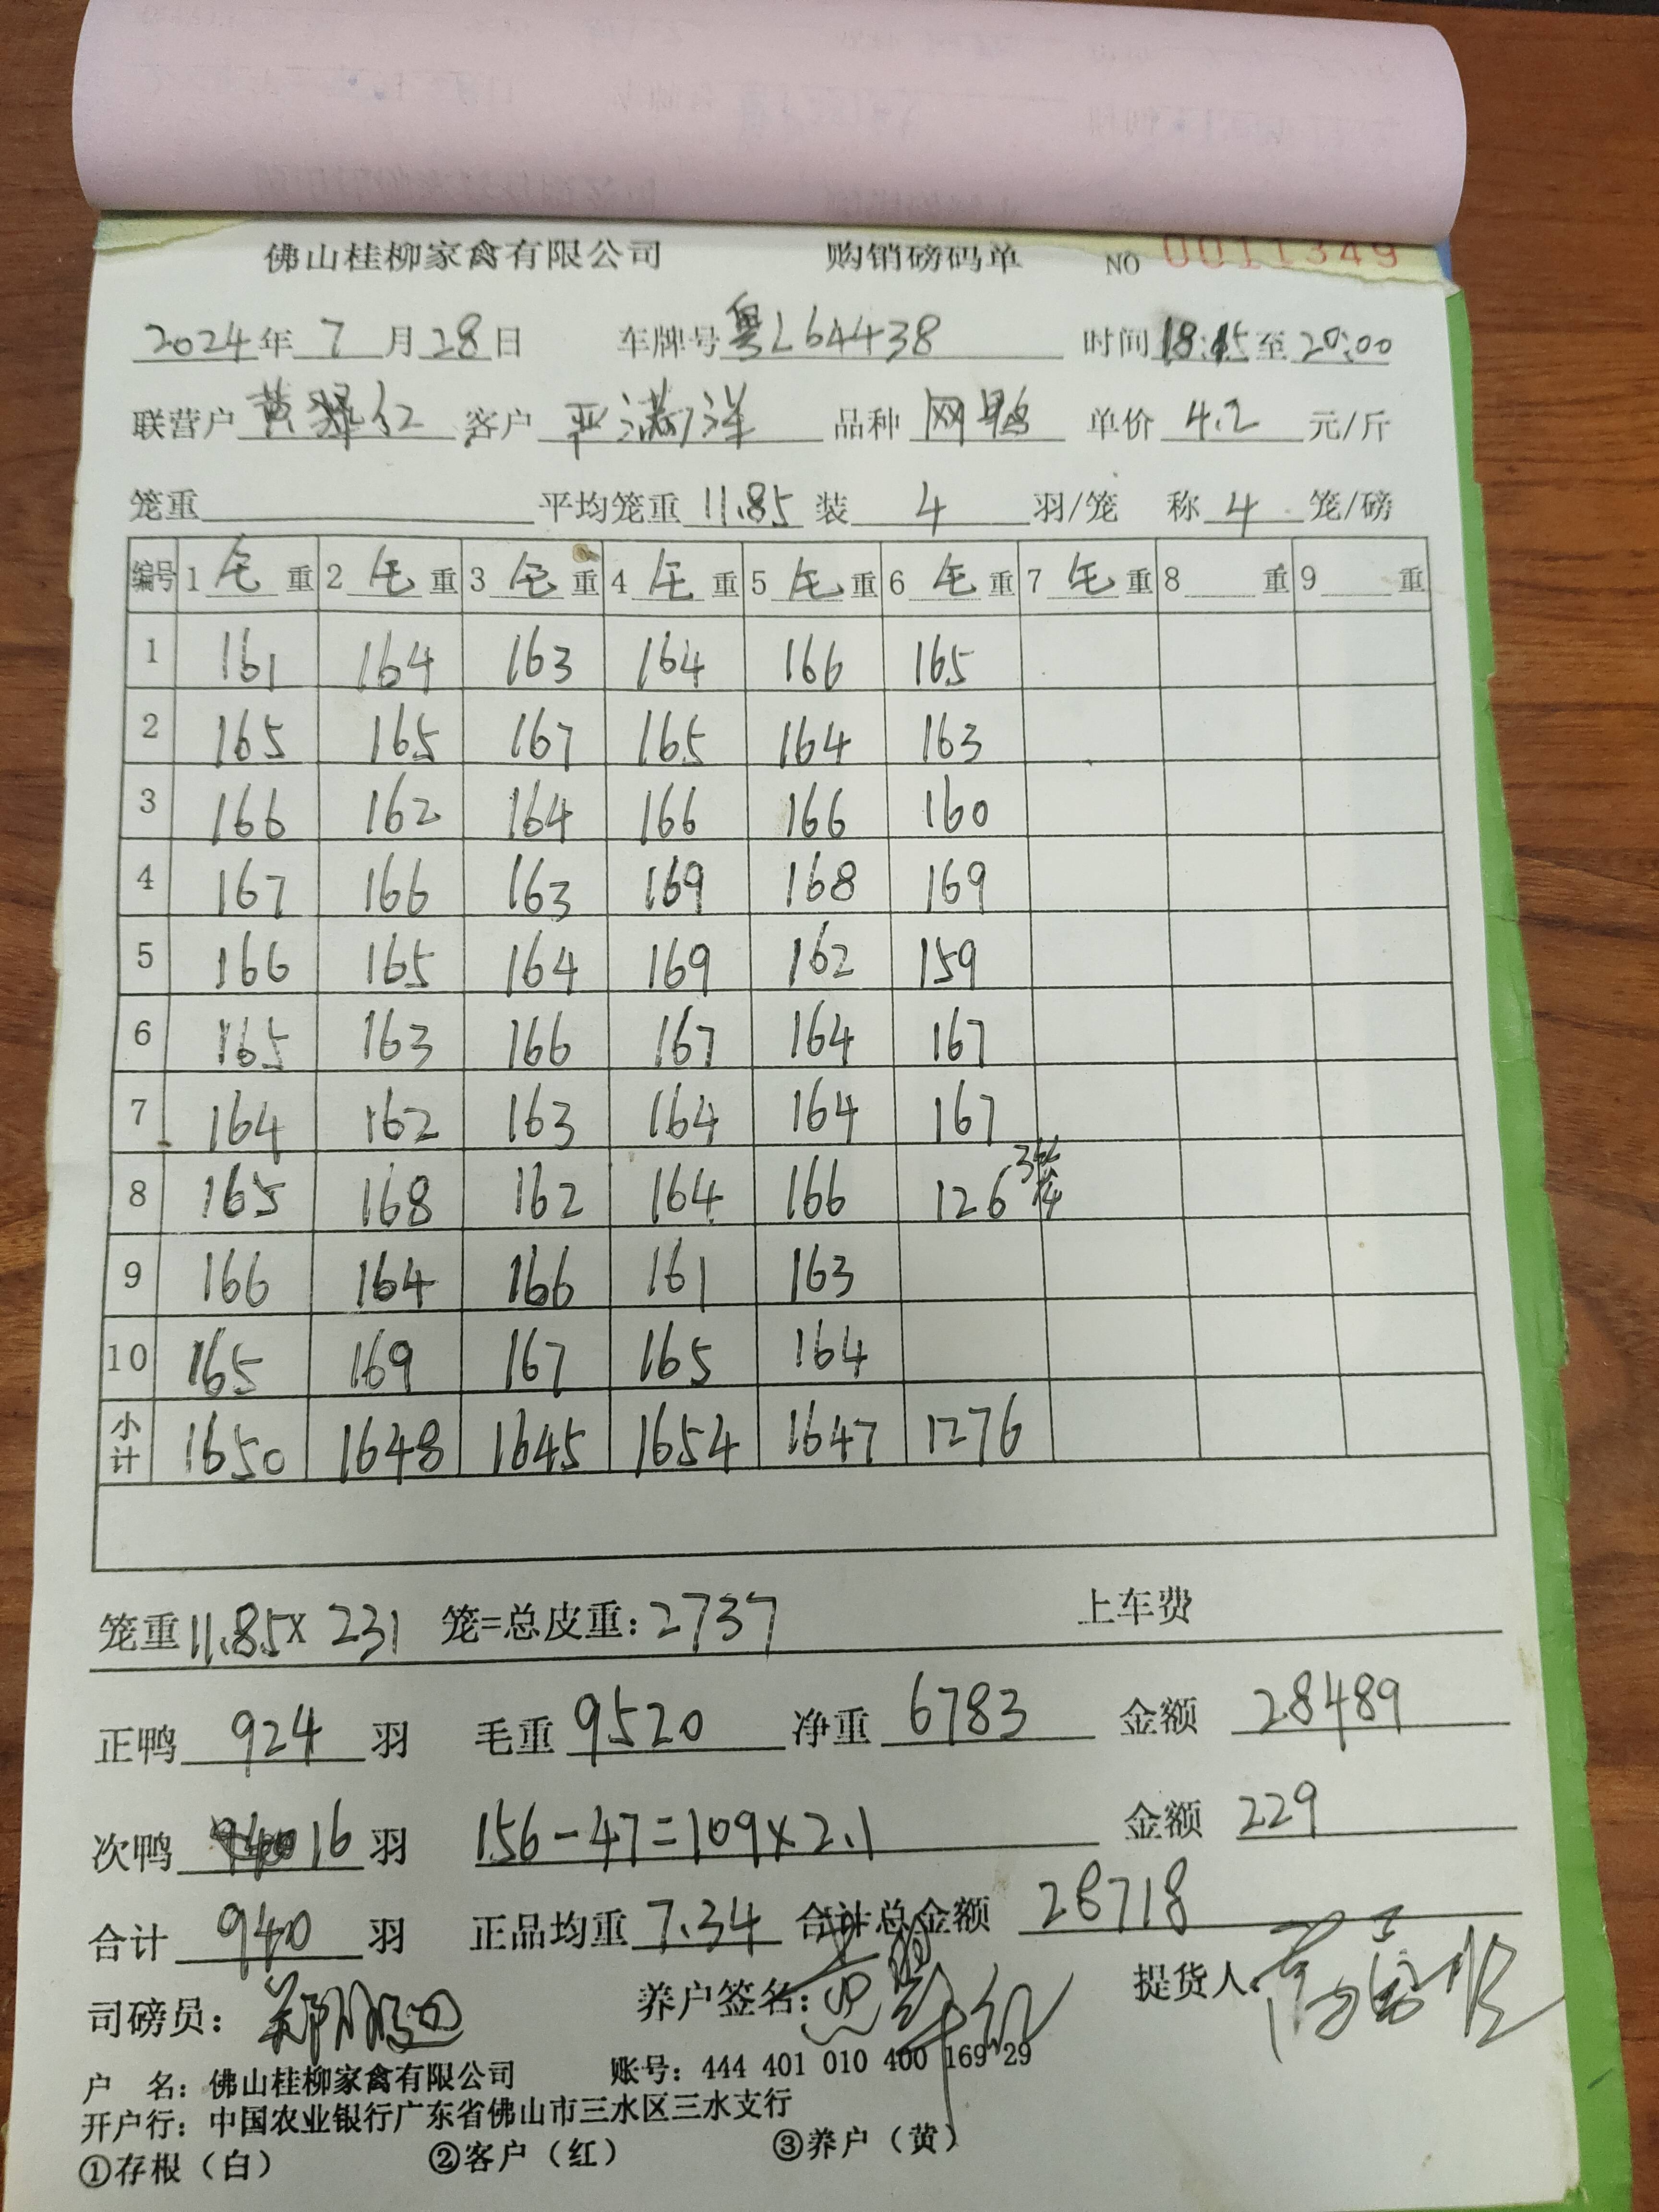 佛山桂柳家禽有限公司 购销磅码单 NO 0011349
2024年 7 月 28 日 车牌号 粤L64438 时间 18:15 至 20:00
联营户 黄翠红 客户 严满洋 品种 网鸭 单价 4.2 元/斤
笼重 平均笼重 11.85 装 4 羽/笼 称 4 笼/磅
编号 1 毛 重 2 毛 重 3 毛 重 4 毛 重 5 毛 重 6 毛 重 7 毛 重 8 重 9 重
1 161 164 163 164 166 165
2 165 165 167 165 164 163
3 166 162 164 166 166 160
4 167 166 163 169 168 169
5 166 165 164 169 162 159
6 165 163 166 167 164 167
7 164 162 163 164 164 167
8 165 168 162 164 166 126
9 166 164 166 161 163
10 165 169 167 165 164
小计 1650 1648 1645 1654 1647 1276
笼重 11.85 x 231 笼=总皮重: 2737 上车费
正鸭 924 羽 毛重 9520 净重 6783 金额 28489
次鸭 16 羽 156-47=109x2.1 金额 229
合计 940 羽 正品均重 7.34 合计总金额 28718
司磅员: 养户签名: 提货人:
户 名: 佛山桂柳家禽有限公司 账号: 444 401 010 400 169 29
开户行: 中国农业银行广东省佛山市三水区三水支行
①存根（白） ②客户（红） ③养户（黄）